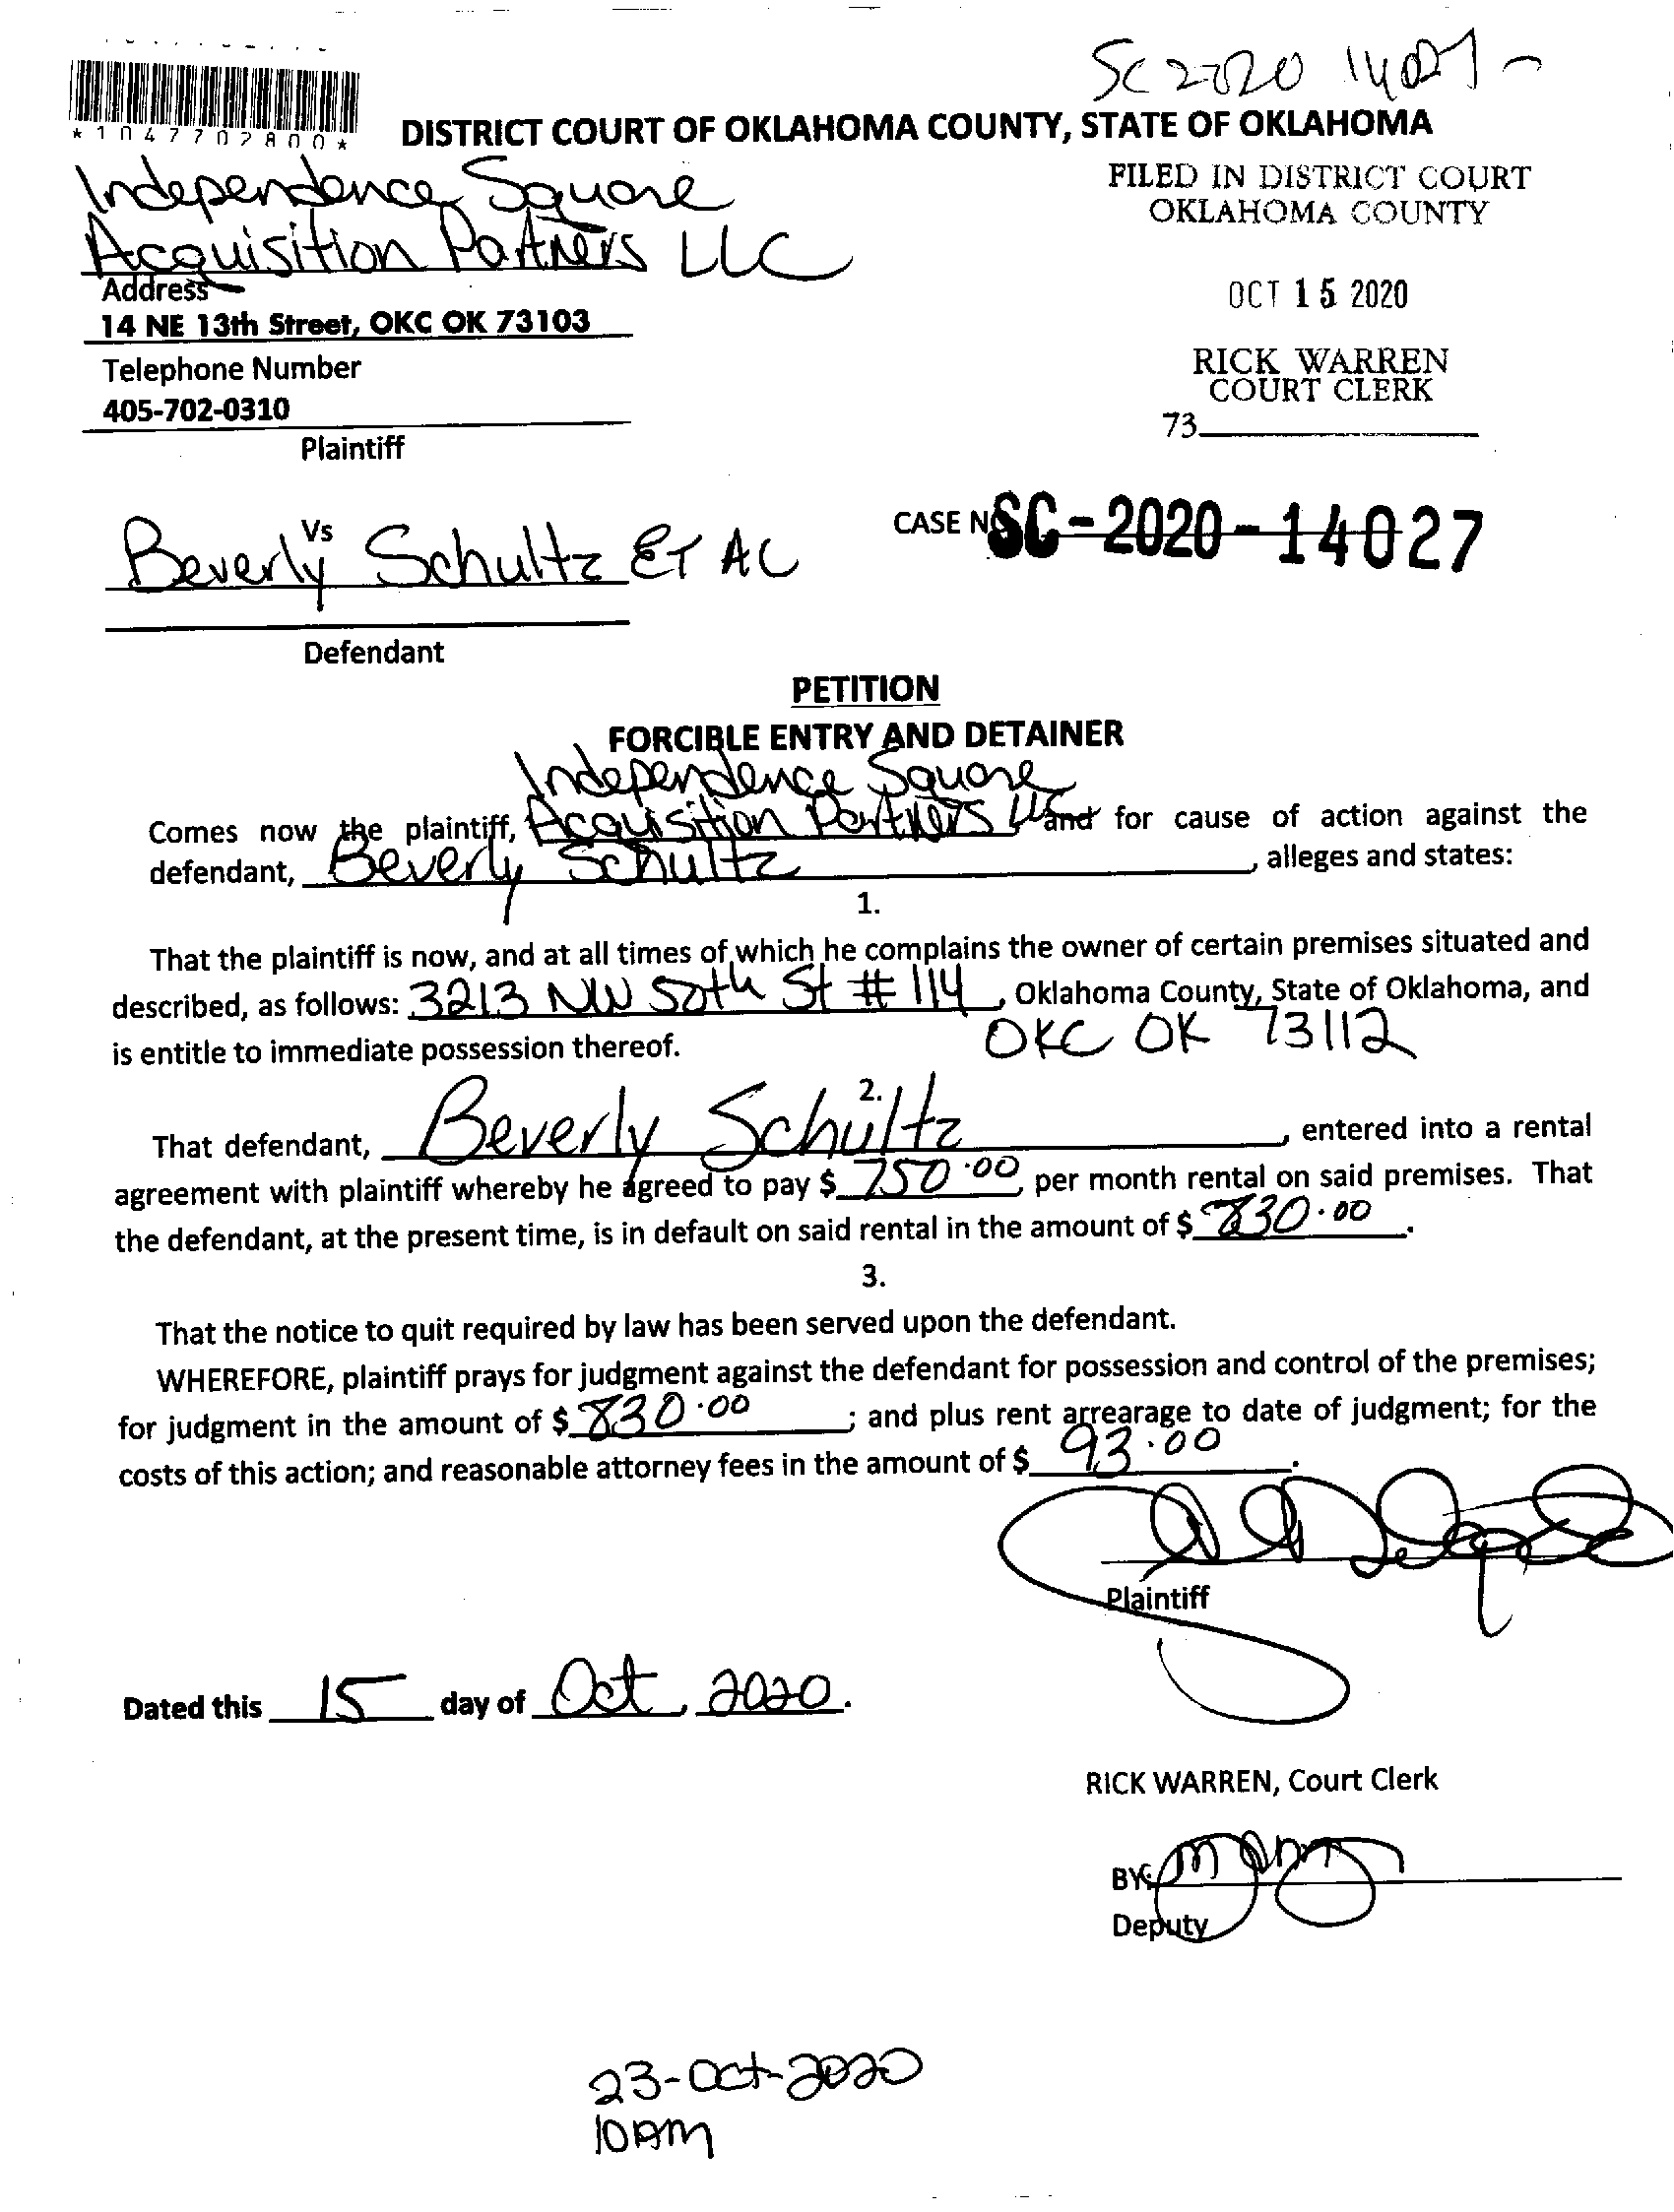 SC 2020 14027
*1047702800*
DISTRICT COURT OF OKLAHOMA COUNTY, STATE OF OKLAHOMA
Independence Square
Acquisition Partners LLC
Address
14 NE 13th Street, OKC OK 73103
Telephone Number
405-702-0310
Plaintiff
FILED IN DISTRICT COURT
OKLAHOMA COUNTY
OCT 15 2020
RICK WARREN
COURT CLERK
73
Vs
Beverly Schultz ET AL
Defendant
CASE NO SC-2020-14027
PETITION
FORCIBLE ENTRY AND DETAINER
Independence Square
Comes now the plaintiff, Acquisition Partners LLC and for cause of action against the
defendant, Beverly Schultz, alleges and states:
1.
That the plaintiff is now, and at all times of which he complains the owner of certain premises situated and
described, as follows: 3213 NW 50th St # 114, Oklahoma County, State of Oklahoma, and
is entitle to immediate possession thereof. OKC OK 73112
2.
That defendant, Beverly Schultz, entered into a rental
agreement with plaintiff whereby he agreed to pay $ 750.00, per month rental on said premises. That
the defendant, at the present time, is in default on said rental in the amount of $ 830.00.
3.
That the notice to quit required by law has been served upon the defendant.
WHEREFORE, plaintiff prays for judgment against the defendant for possession and control of the premises;
for judgment in the amount of $ 830.00; and plus rent arrearage to date of judgment; for the
costs of this action; and reasonable attorney fees in the amount of $ 93.00.
Plaintiff
Dated this 15 day of Oct, 2020.
RICK WARREN, Court Clerk
BY:
Deputy
23-Oct-2020
10AM